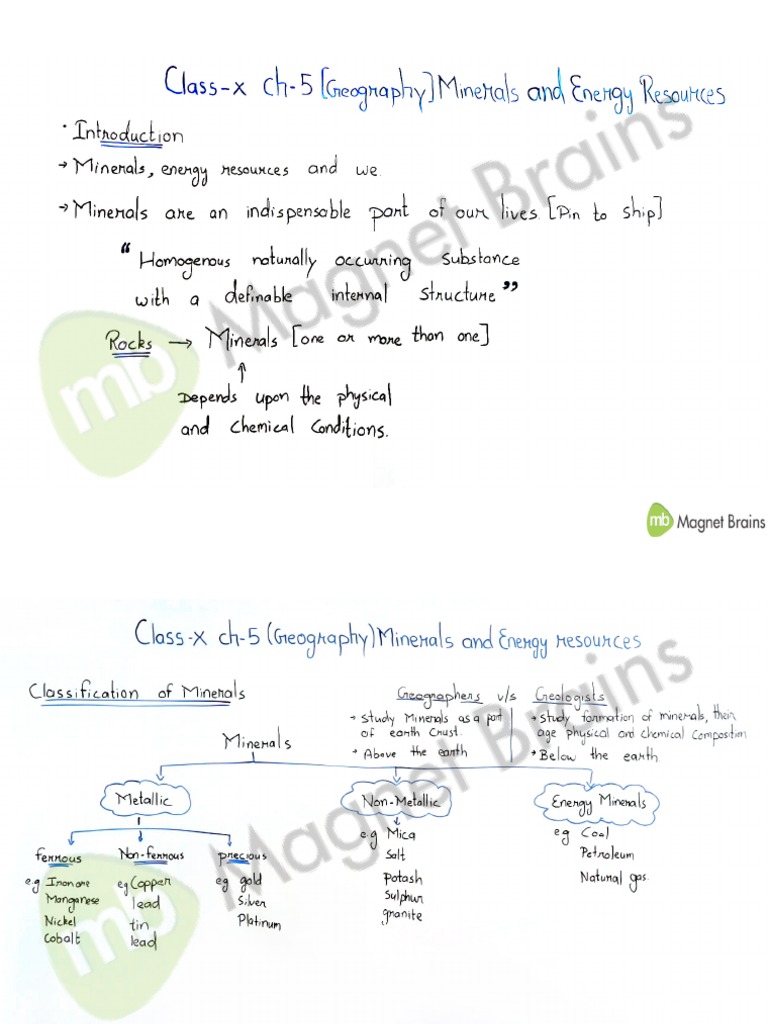 Class-x ch-5 [Geography] Minerals and Energy Resources
• Introduction
→ Minerals, energy resources and we.
→ Minerals are an indispensable part of our lives. [Pin to ship]
“ Homogenous naturally occurring substance
with a definable internal structure ”
Rocks → Minerals [one or more than one]
↑
Depends upon the physical
and chemical conditions.
mb Magnet Brains
mb Magnet Brains
Class-x ch-5 (Geography) Minerals and Energy resources
Classification of Minerals
Geographers v/s Geologists
→ Study Minerals as a part
of earth crust.
→ Above the earth
→ Study formation of minerals, their
age physical and chemical composition
→ Below the earth
Minerals
Metallic
Non-Metallic
Energy Minerals
ferrous
e.g Iron ore
Manganese
Nickel
Cobalt
Non-ferrous
eg Copper
lead
tin
lead
precious
eg gold
Silver
Platinum
e.g Mica
Salt
Potash
Sulphur
granite
eg Coal
Petroleum
Natural gas.
mb Magnet Brains